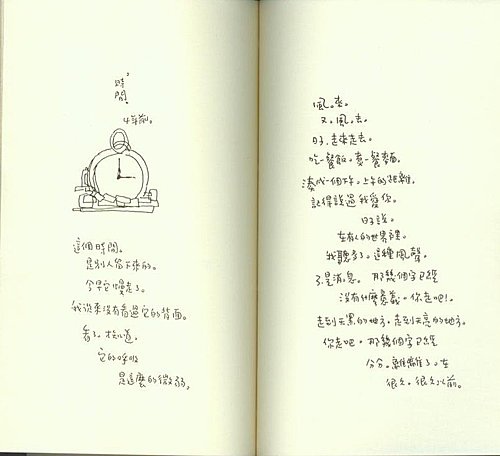 時
間,
4年前,
這個時間.
是別人留下來的.
今早它慢走了.
我從來沒有看過它的背面.
看了.才知道.
它的呼吸
是這麼的微弱,
風.來.
又.風.去.
日子.走來走去.
吃一餐飯.煮一餐麵.
湊成一個下午.上午的距離.
記得說過我愛你.
日子說.
在有人的世界裡.
我聽多了.這種風聲.
不是消息.那幾個字已經
沒有什麼意義.你走吧!.
走到天黑的地方.走到天亮的地方.
你走吧.那幾個字已經
分分.離離了.在
很久.很久以前.